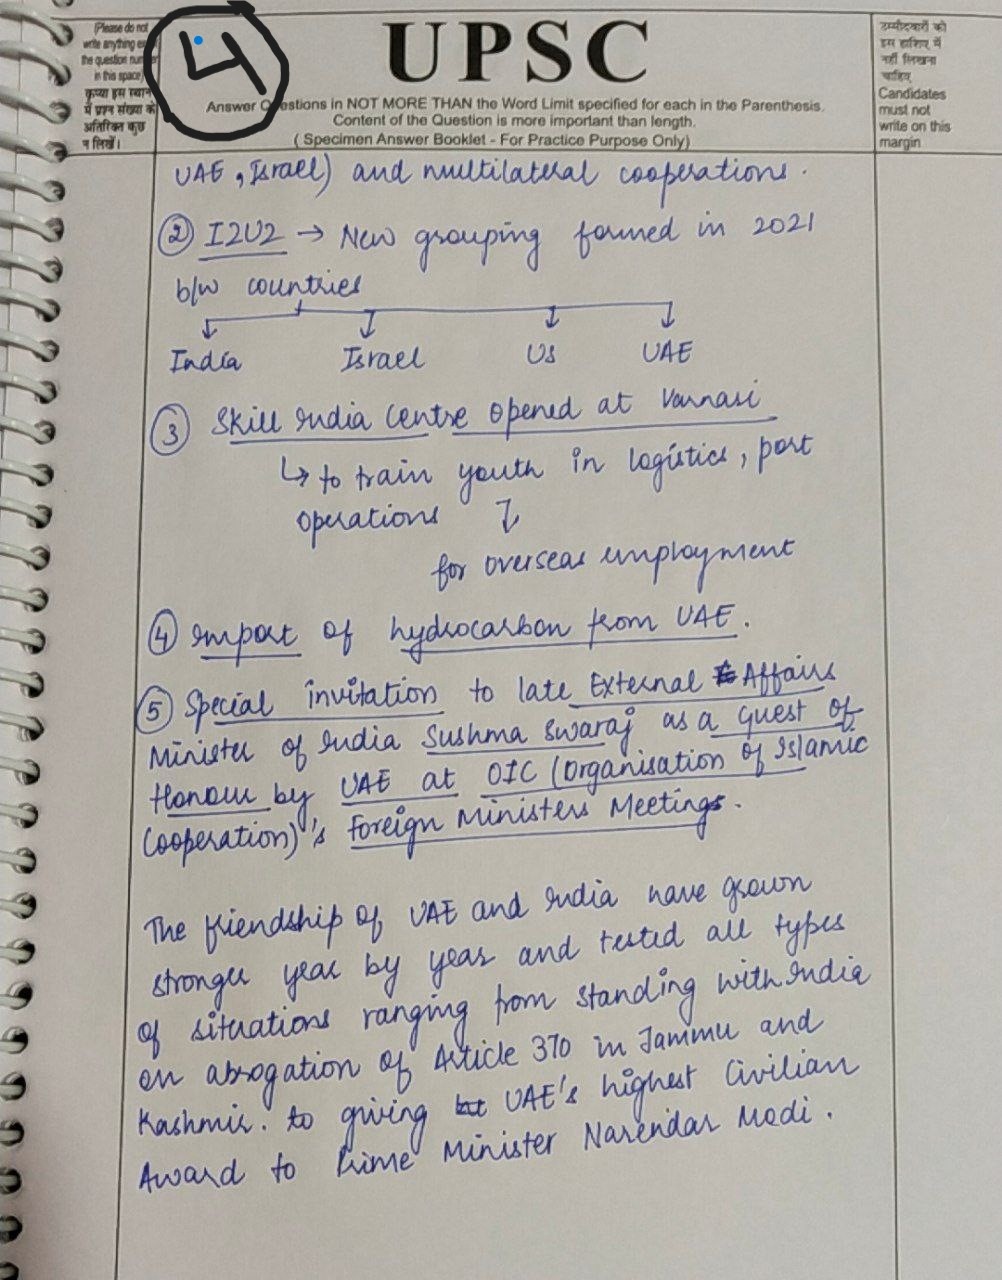 (Please do not
write anything ex
the question num
in this space)
कृप्या इस स्थान
में प्रश्न संख्या के
अतिरिक्त कुछ
न लिखें।
4
UPSC
Answer Questions in NOT MORE THAN the Word Limit specified for each in the Parenthesis.
Content of the Question is more important than length.
( Specimen Answer Booklet - For Practice Purpose Only)
उम्मीदवारों को
इस हाशिए में
नहीं लिखना
चाहिए
Candidates
must not
write on this
margin
UAE, Israel) and multilateral cooperations.
② I2U2 → New grouping formed in 2021
b/w countries
India Israel US UAE
③ Skill India Centre opened at Varnasi
↳ to train youth in logistics, port
operations ↓
for overseas employment
④ Import of hydrocarbon from UAE.
⑤ Special invitation to late External Affairs
Minister of India Sushma Swaraj as a guest of
Honour by UAE at OIC (Organisation of Islamic
Cooperation)'s Foreign Ministers Meetings.
The friendship of UAE and India have grown
stronger year by year and tested all types
of situations ranging from standing with India
on abrogation of Article 370 in Jammu and
Kashmir. to giving UAE's highest Civilian
Award to Prime Minister Narendar Modi.